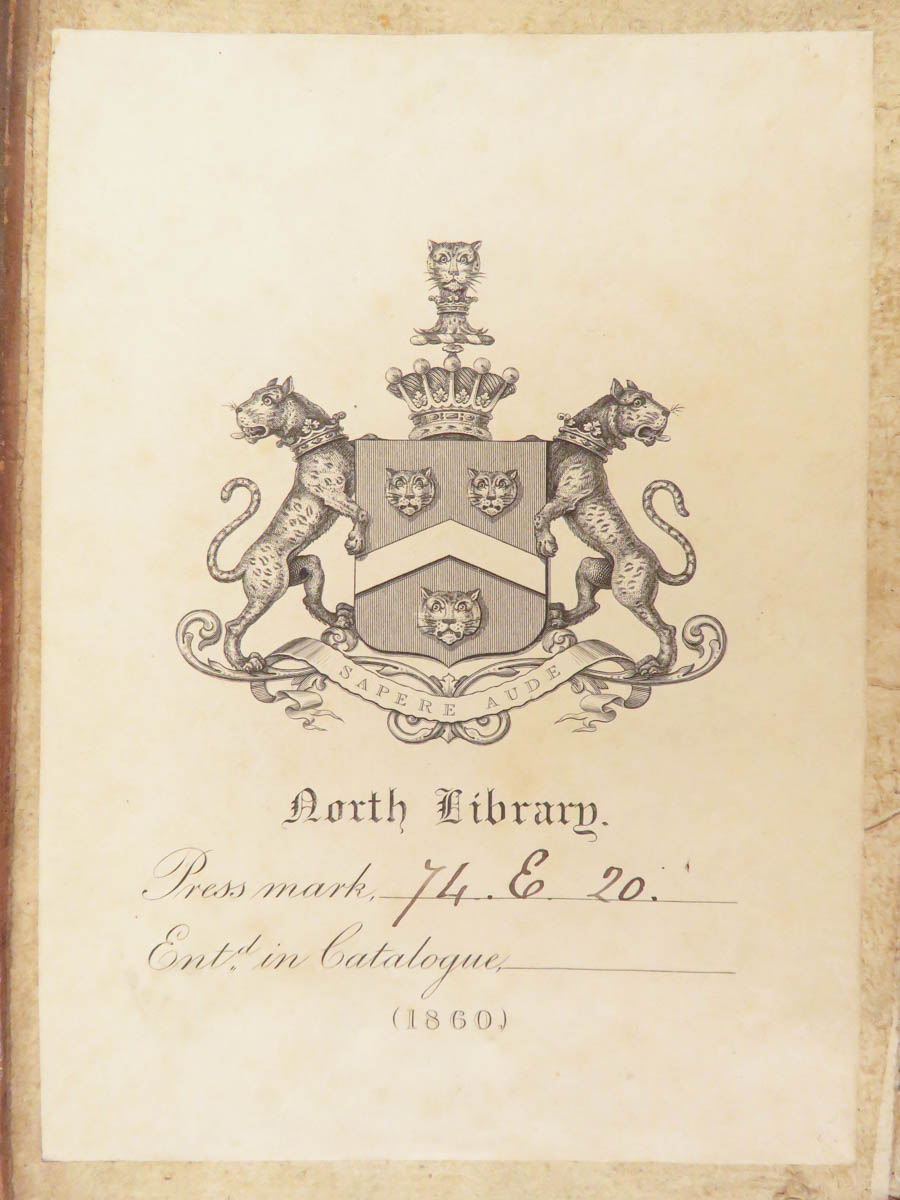 SAPERE AUDE
North Library.
Press mark, 74. E 20.
Ent.d in Catalogue,
(1860)